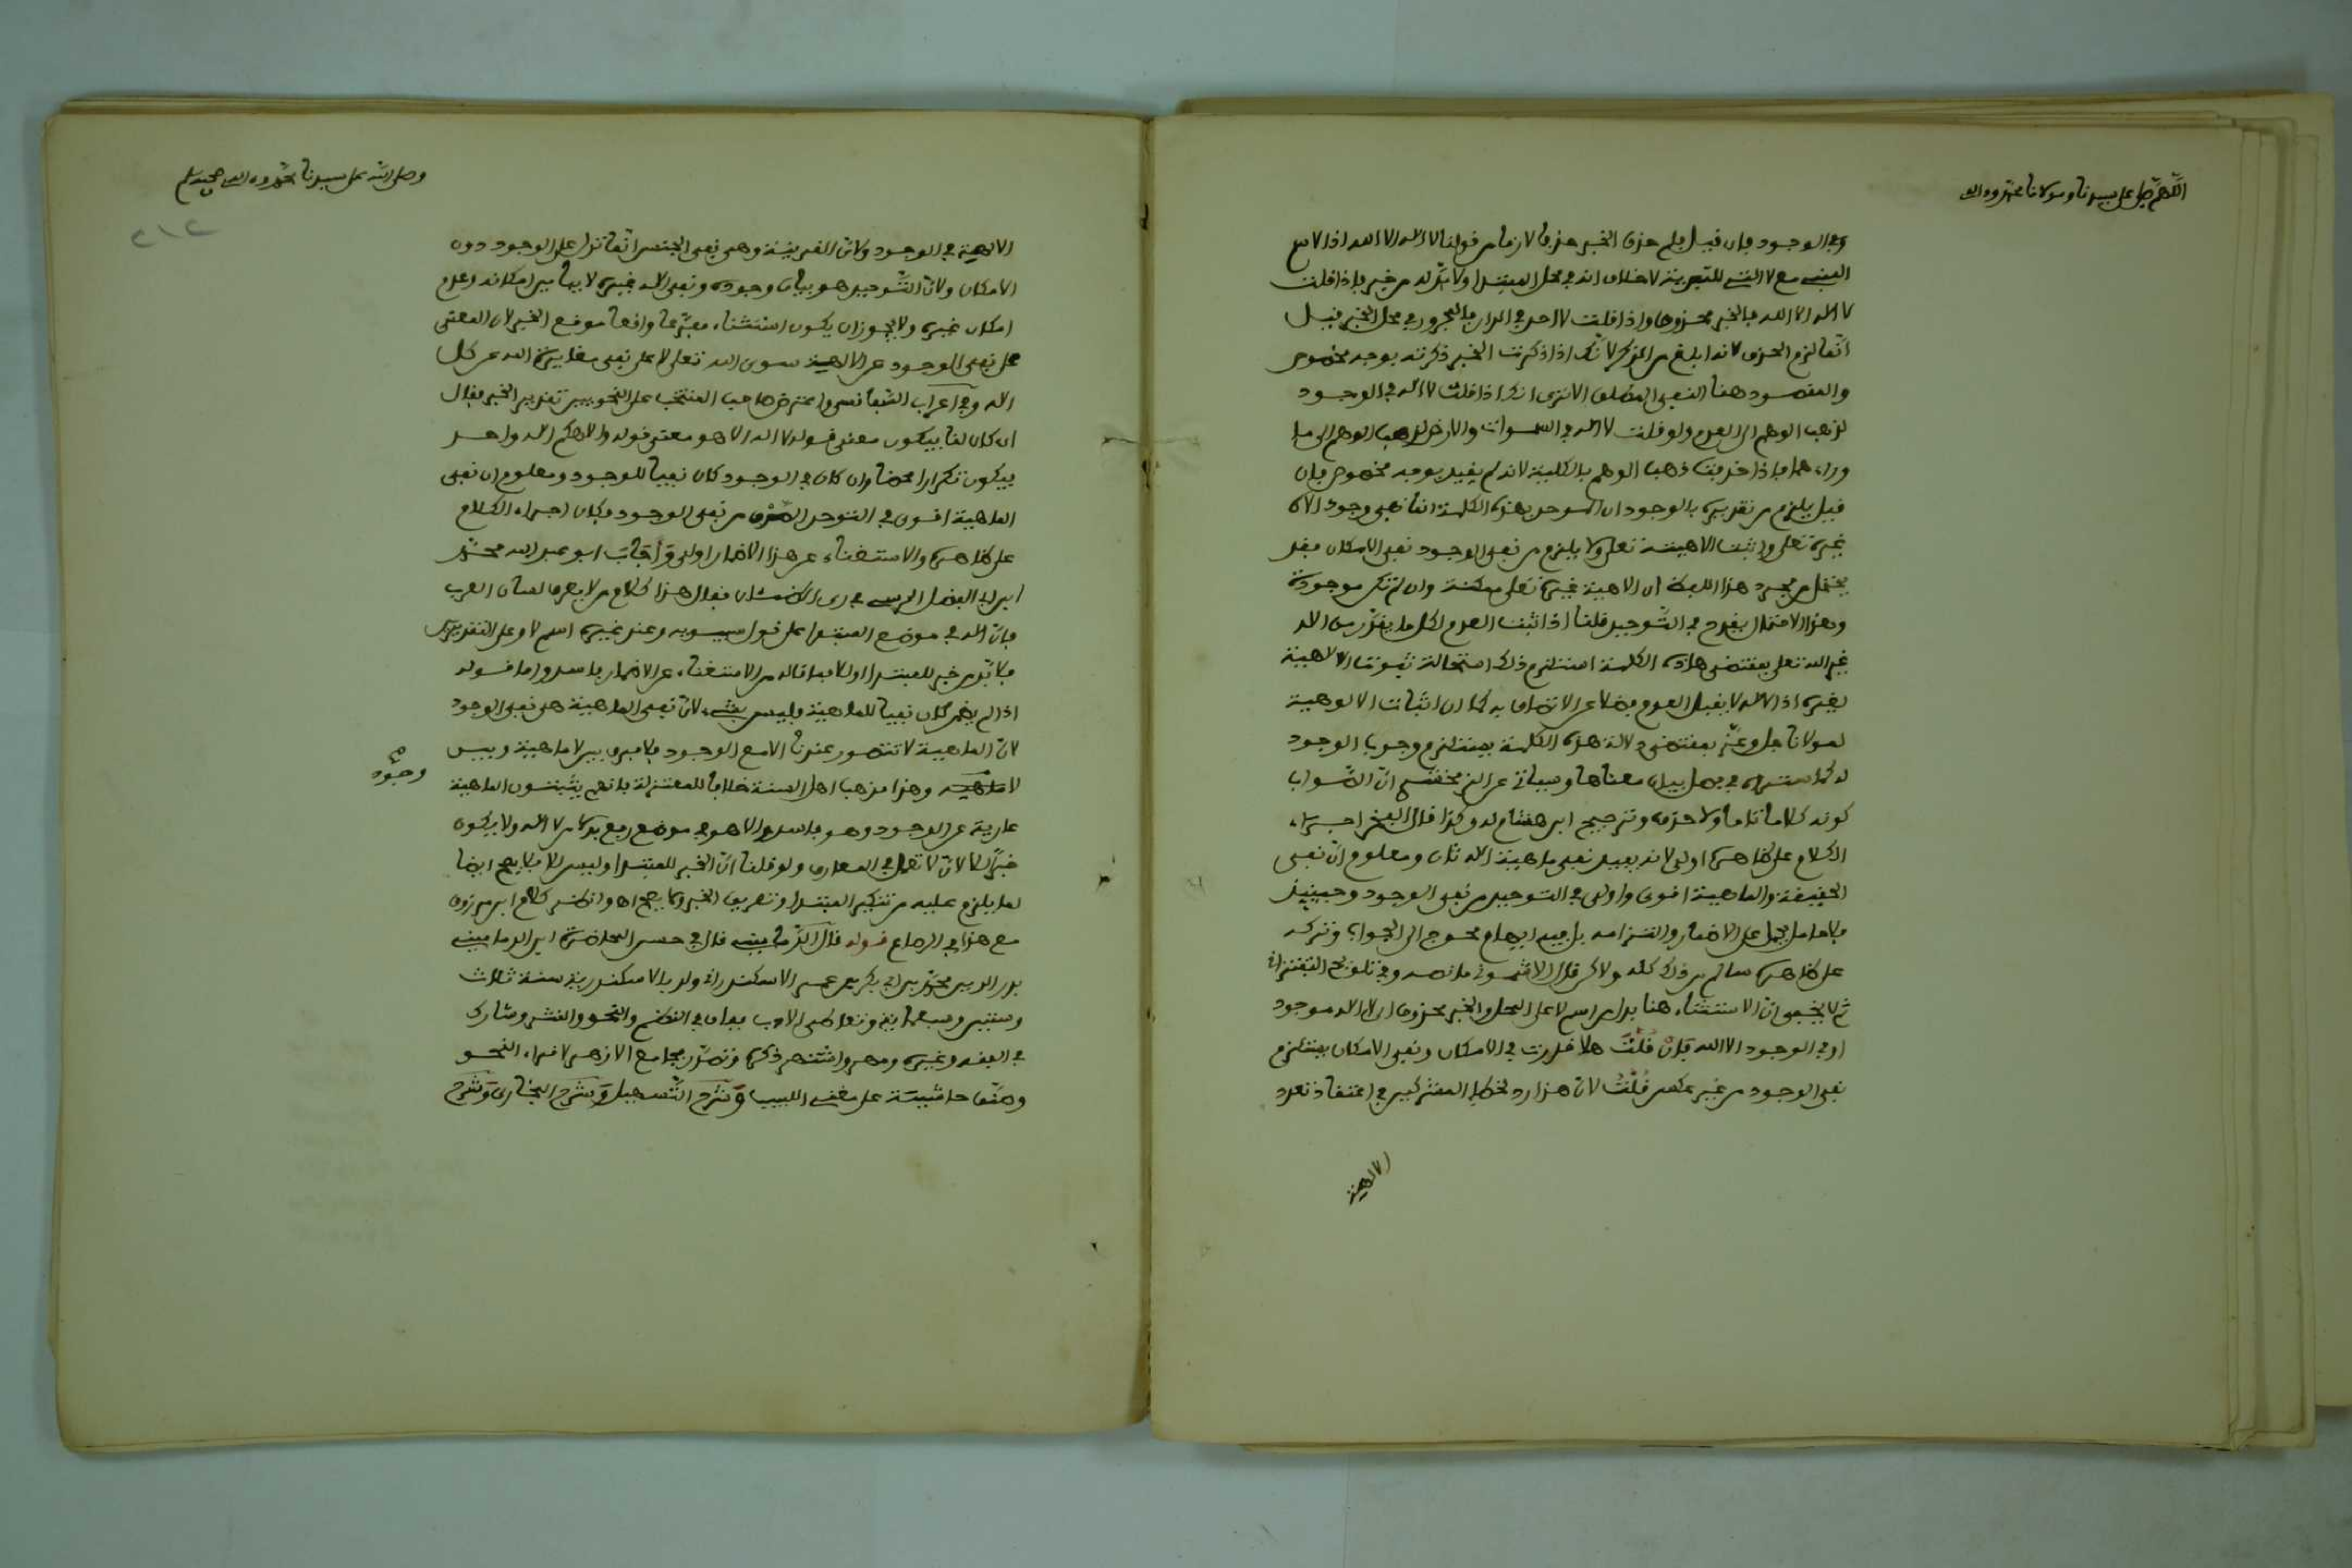 اللهم صل على سيدنا ومولانا محمد وءاله
وفي الوجود فإن قيل فلم حذف الخبر حذفا لازما من قولنا لا اله الا الله اذ الاسم
المبني مع لا التي للتبرئة لا خلاف انه في محل المبتدا ولا بد له من خبر فإذا قلت
لا اله الا الله فالخبر محذوف واذا قلت لا احد في الدار فالمجرور في محل الخبر قيل
انما لزم الحذف لانه ابلغ من الذكر لانك اذا ذكرت الخبر ذكرته بوجه مخصوص
والمقصود هنا النفي المطلق الا ترى انك اذا قلت لا اله في الوجود
لذهب الوهم الى العدم ولو قلت لا اله في السموات والارض لذهب الوهم الى ما
وراءهما فإذا حذفت ذهب الوهم بالكلية لانه لم يقيد بوجه مخصوص فإن
قيل يلزم من تقديره بالوجود ان الموحد بهذه الكلمة انما نفى وجود الاه
غيره تعلى واثبت الاهيته تعلى ولا يلزم من نفي الوجود نفي الامكان فقد
يحتمل من مجرد هذا اللفظ ان الاهية غيره تعلى ممكنة وان لم تكن موجودة
وهذا الاحتمال يقدح في التوحيد قلنا اذا ثبت العدم لكل ما يقدر من الاه
غير الله تعلى بمقتضى هذه الكلمة استلزم ذلك استحالة ثبوت الالهية
لغيره اذ الاله لا يقبل العدم فضلا عن الاتصاف به كما ان اثبات الالوهية
لمولانا جل وعز بمقتضى دلالة هذه الكلمة يستلزم وجوب الوجود
له كما ستراه في فصل بيان معناها وسياتي عن الزمخشري ان الصواب
كونه كلاما تاما ولا حذف وترجيح ابن هشام له وكذا قال الفخر اجراء
الكلام على ظاهره اولى لانه يفيد نفي ماهية اله ثان ومعلوم ان نفي
الحقيقة والماهية اقوى واولى في التوحيد من نفي الوجود وحينئذ
فلا حامل يحمل على الاضمار والتزامه بل فيه ايهام محوج الى الجواب وتركه
على ظاهره سالم من ذلك كله ولاكن قال الاشموني ما نصه وفي تلويح التفتزاني
ثم لا يخفى ان الاستثناء هنا بدل من اسم لا على المحل والخبر محذوف اي لا اله موجود
او في الوجود الا الله فإن قلت هلا قدرت في الامكان ونفي الامكان يستلزم
نفي الوجود من غير عكس قلت لان هذا رد لخطإ المشركين في اعتقاد تعدد
الالهية
وصلى الله على سيدنا محمد وءاله وصحبه وسلم
٢١٢
الالهية في الوجود ولان القرينة وهي نفي الجنس انما تدل على الوجود دون
الامكان ولان التوحيد هو بيان وجوده ونفي اله غيره لا بيان امكانه وعدم
امكان غيره ولا يجوز ان يكون استثناء مفرغا واقعا موقع الخبر لان المعنى
على نفي الوجود عن الالهية سوى الله تعلى لا على نفي مغايرة الله عن كل
اله وفي اعراب السفاقسي واعترض صاحب المنتخب على النحويين تقدير الخبر فقال
ان كان لنا فيكون معنى قوله لا اله الا هو معنى قوله والاهكم اله واحد
فيكون تكرارا محضا وان كان في الوجود كان نفيا للوجود ومعلوم ان نفي
الماهية اقوى في التوحيد الصرف من نفي الوجود فكان اجراء الكلام
على ظاهره والاستغناء عن هذا الاضمار اولى واجاب ابو عبد الله محمد
ابن ابي الفضل المرسي في ري الظمئان فقال هذا كلام من لا يعرف لسان العرب
فإن اله في موضع المبتدا على قول سيبويه وعند غيره اسم لا وعلى التقديرين
فلا بد من خبر للمبتدا او للا فما قاله من الاستغناء عن الاضمار فاسد واما قوله
اذا لم يضمر كان نفيا للماهية فليس بشيء لان نفي الماهية هي نفي الوجود
لان الماهية لا تتصور عندنا الا مع الوجود فلا فرق بين لا ماهية وبين
لا وجود وهذا مذهب اهل السنة خلافا للمعتزلة فإنهم يثبتون الماهية
عارية عن الوجود وهو فاسد والا هو في موضع رفع بدلا من لا اله ولا يكون
خبرا للا لان لا تعمل في المعارف ولو قلنا ان الخبر للمبتدا وليس للا فلا يصح ايضا
لما يلزم عليه من تنكير المبتدا وتعريف الخبر ولا يصح اهـ وانظر كلام ابن مرزوق
مع هذا في الرصاع قوله قال الدماميني قال في حسن المحاضرة ابن الدماميني
بدر الدين محمد بن ابي بكر بن عمر الاسكندراني ولد بالاسكندرية سنة ثلاث
وستين وسبعمائة وتعاطى الادب ففاق في النظم والنحو والنثر وشارك
في الفقه وغيره ومهر واشتهر ذكره وتصدر بجامع الازهر لاقراء النحو
وصنف حاشية على مغني اللبيب وشرح التسهيل وشرح البخاري وشرح
وجود